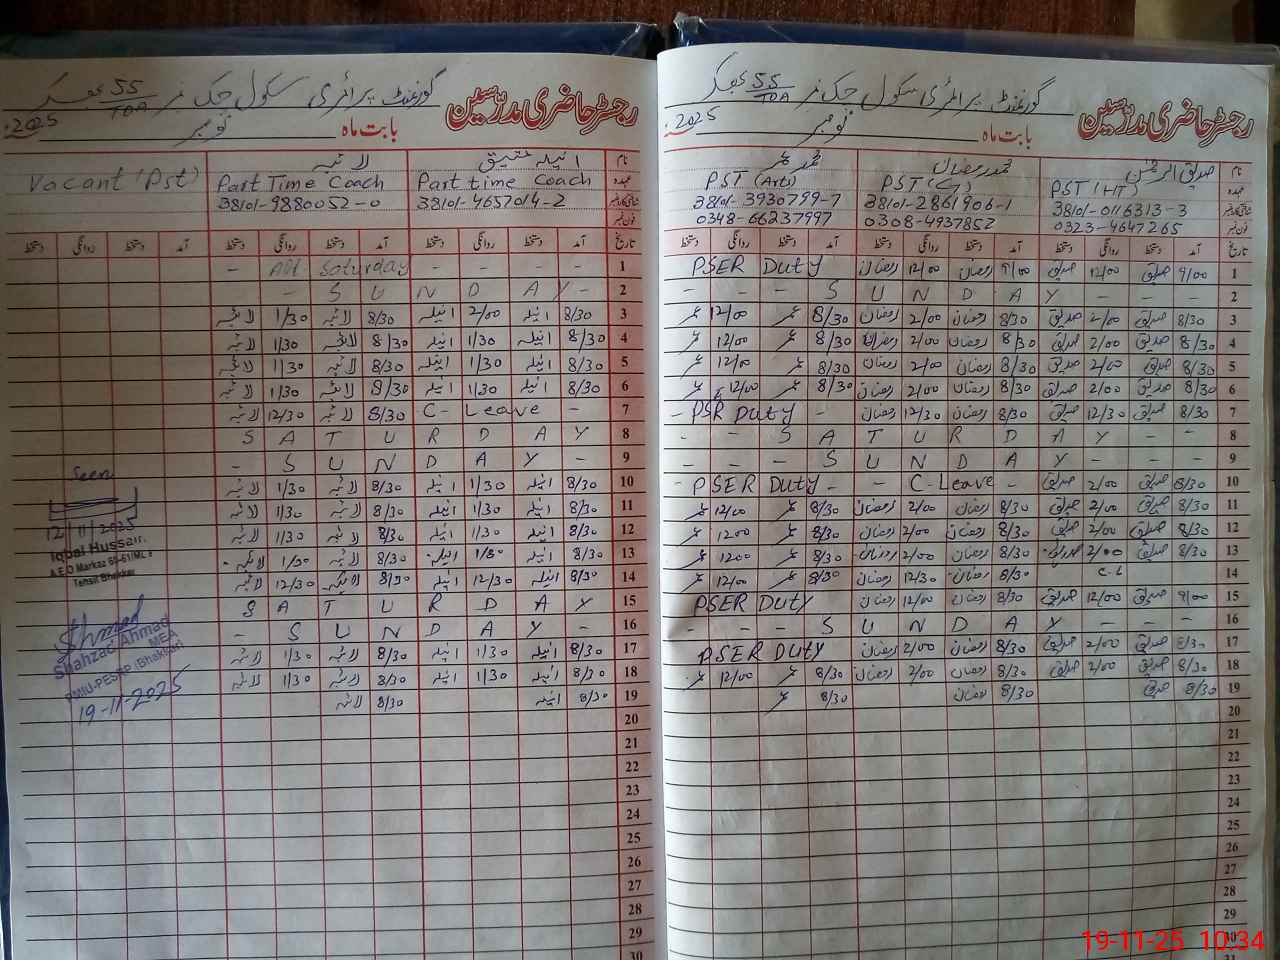 رجسٹر حاضری مدرسین گورنمنٹ پرائمری سکول چک نمبر 55/TDA بھکر
بابت ماہ نومبر 2025
نام صدیق الرحمٰن محمد رمضان محمد عمر
عہدہ PST (HT) PST (G) PST (Arts)
شناختی کارڈ نمبر 38101-0116313-3 38101-2861906-1 38101-3930799-7
فون نمبر 0323-4647265 0308-4937852 0348-66237997
تاریخ آمد دستخط روانگی دستخط آمد دستخط روانگی دستخط آمد دستخط روانگی دستخط
1 9/00 صدیق 12/00 صدیق 9/00 رمضان 12/00 رمضان PSER Duty
2 - - - S U N D A Y - - -
3 8/30 صدیق 2/00 صدیق 8/30 رمضان 2/00 رمضان 8/30 عمر 12/00 عمر
4 8/30 صدیق 2/00 صدیق 8/30 رمضان 2/00 رمضان 8/30 عمر 12/00 عمر
5 8/30 صدیق 2/00 صدیق 8/30 رمضان 2/00 رمضان 8/30 عمر 12/00 عمر
6 8/30 صدیق 2/00 صدیق 8/30 رمضان 2/00 رمضان 8/30 عمر 12/00 عمر
7 8/30 صدیق 12/30 صدیق 8/30 رمضان 12/30 رمضان - PSR Duty -
8 - - S A T U R D A Y - -
9 - - - S U N D A Y - - -
10 8/30 صدیق 2/00 صدیق - C.Leave - - PSER Duty -
11 8/30 صدیق 2/00 صدیق 8/30 رمضان 2/00 رمضان 8/30 عمر 12/00 عمر
12 8/30 صدیق 2/00 صدیق 8/30 رمضان 2/00 رمضان 8/30 عمر 1200 عمر
13 8/30 صدیق 2/00 صدیق 8/30 رمضان 2/00 رمضان 8/30 عمر 1200 عمر
14 C.L 8/30 رمضان 12/30 رمضان 8/30 عمر 12/00 عمر
15 9/00 صدیق 12/00 صدیق 8/30 رمضان 12/00 رمضان PSER Duty
16 - - - S U N D A Y - - -
17 8/30 صدیق 2/00 صدیق 8/30 رمضان 2/00 رمضان PSER DUTY
18 8/30 صدیق 2/00 صدیق 8/30 رمضان 2/00 رمضان 8/30 عمر 12/00 عمر
19 8/30 صدیق 8/30 رمضان 8/30 عمر
20
21
22
23
24
25
26
27
28
29
30
31
رجسٹر حاضری مدرسین گورنمنٹ پرائمری سکول چک نمبر 55/TDA بھکر
بابت ماہ نومبر 2025
نام انیلہ عتیق لائبہ
عہدہ Part time Coach Part Time Coach Vacant (Pst)
شناختی کارڈ نمبر 38101-4657014-2 38101-9880052-0
فون نمبر
تاریخ آمد دستخط روانگی دستخط آمد دستخط روانگی دستخط آمد دستخط روانگی دستخط
1 - Saturday - - - -
2 - - S U N D A Y -
3 8/30 انیلہ 2/00 انیلہ 8/30 لائبہ 1/30 لائبہ
4 8/30 انیلہ 1/30 انیلہ 8/30 لائبہ 1/30 لائبہ
5 8/30 انیلہ 1/30 انیلہ 8/30 لائبہ 1/30 لائبہ
6 8/30 انیلہ 1/30 انیلہ 8/30 لائبہ 1/30 لائبہ
7 C- Leave - 8/30 لائبہ 12/30 لائبہ
8 S A T U R D A Y
9 - S U N D A Y -
10 8/30 انیلہ 1/30 انیلہ 8/30 لائبہ 1/30 لائبہ
11 8/30 انیلہ 1/30 انیلہ 8/30 لائبہ 1/30 لائبہ
12 8/30 انیلہ 1/30 انیلہ 8/30 لائبہ 1/30 لائبہ
13 8/30 انیلہ 1/30 انیلہ 8/30 لائبہ 1/30 لائبہ
14 8/30 انیلہ 12/30 انیلہ 8/30 لائبہ 12/30 لائبہ
15 S A T U R D A Y
16 - S U N D A Y -
17 8/30 انیلہ 1/30 انیلہ 8/30 لائبہ 1/30 لائبہ
18 8/30 انیلہ 1/30 انیلہ 8/30 لائبہ 1/30 لائبہ
19 8/30 انیلہ 8/30 لائبہ
20
21
22
23
24
25
26
27
28
29
30
Seen
12/11/2025
Iqbal Hussain
A.E.O Markaz
Tehsil Bhakkar
Shahzad Ahmad
MEA
PMIU-PESRP (Bhakkar)
19-11-2025
19-11-25 10:34